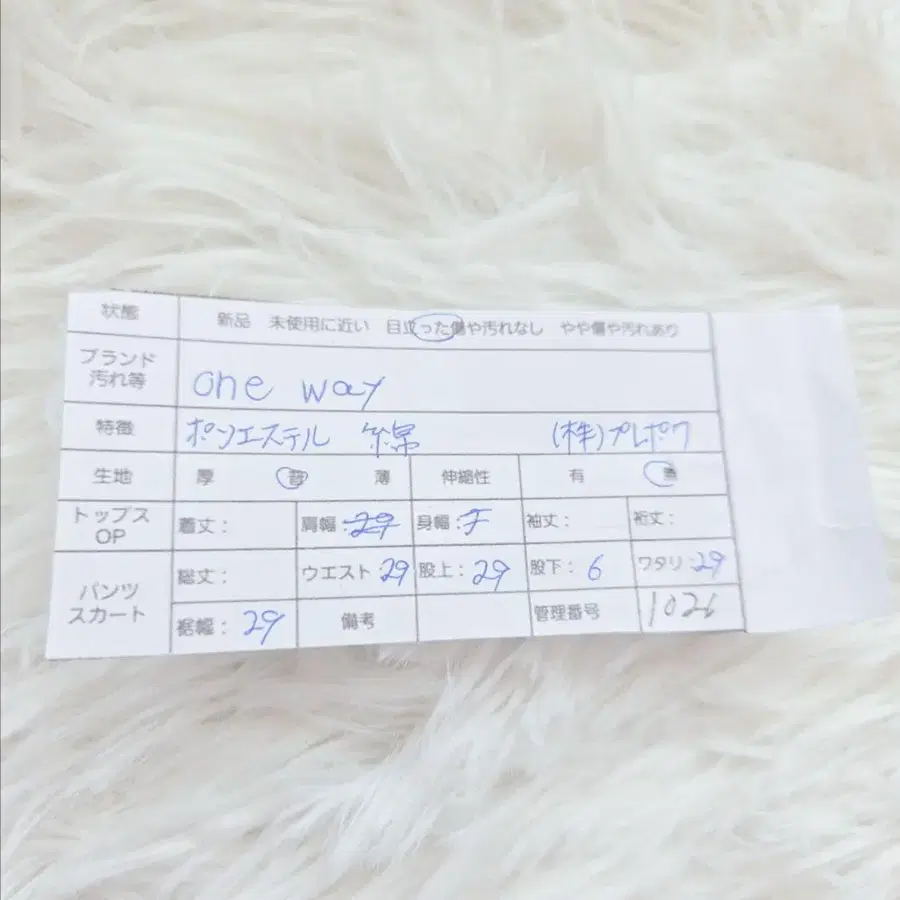 状態 新品 未使用に近い 目立った傷や汚れなし やや傷や汚れあり
ブランド
汚れ等 one way
特徴 ポリエステル 綿 (株)プレポワ
生地 厚 普 薄 伸縮性 有 無
トップス
OP 着丈: 肩幅:29 身幅: 袖丈: 裄丈:
パンツ
スカート 総丈: ウエスト:29 股上:29 股下:6 ワタリ:29
裾幅:29 備考 管理番号 1026